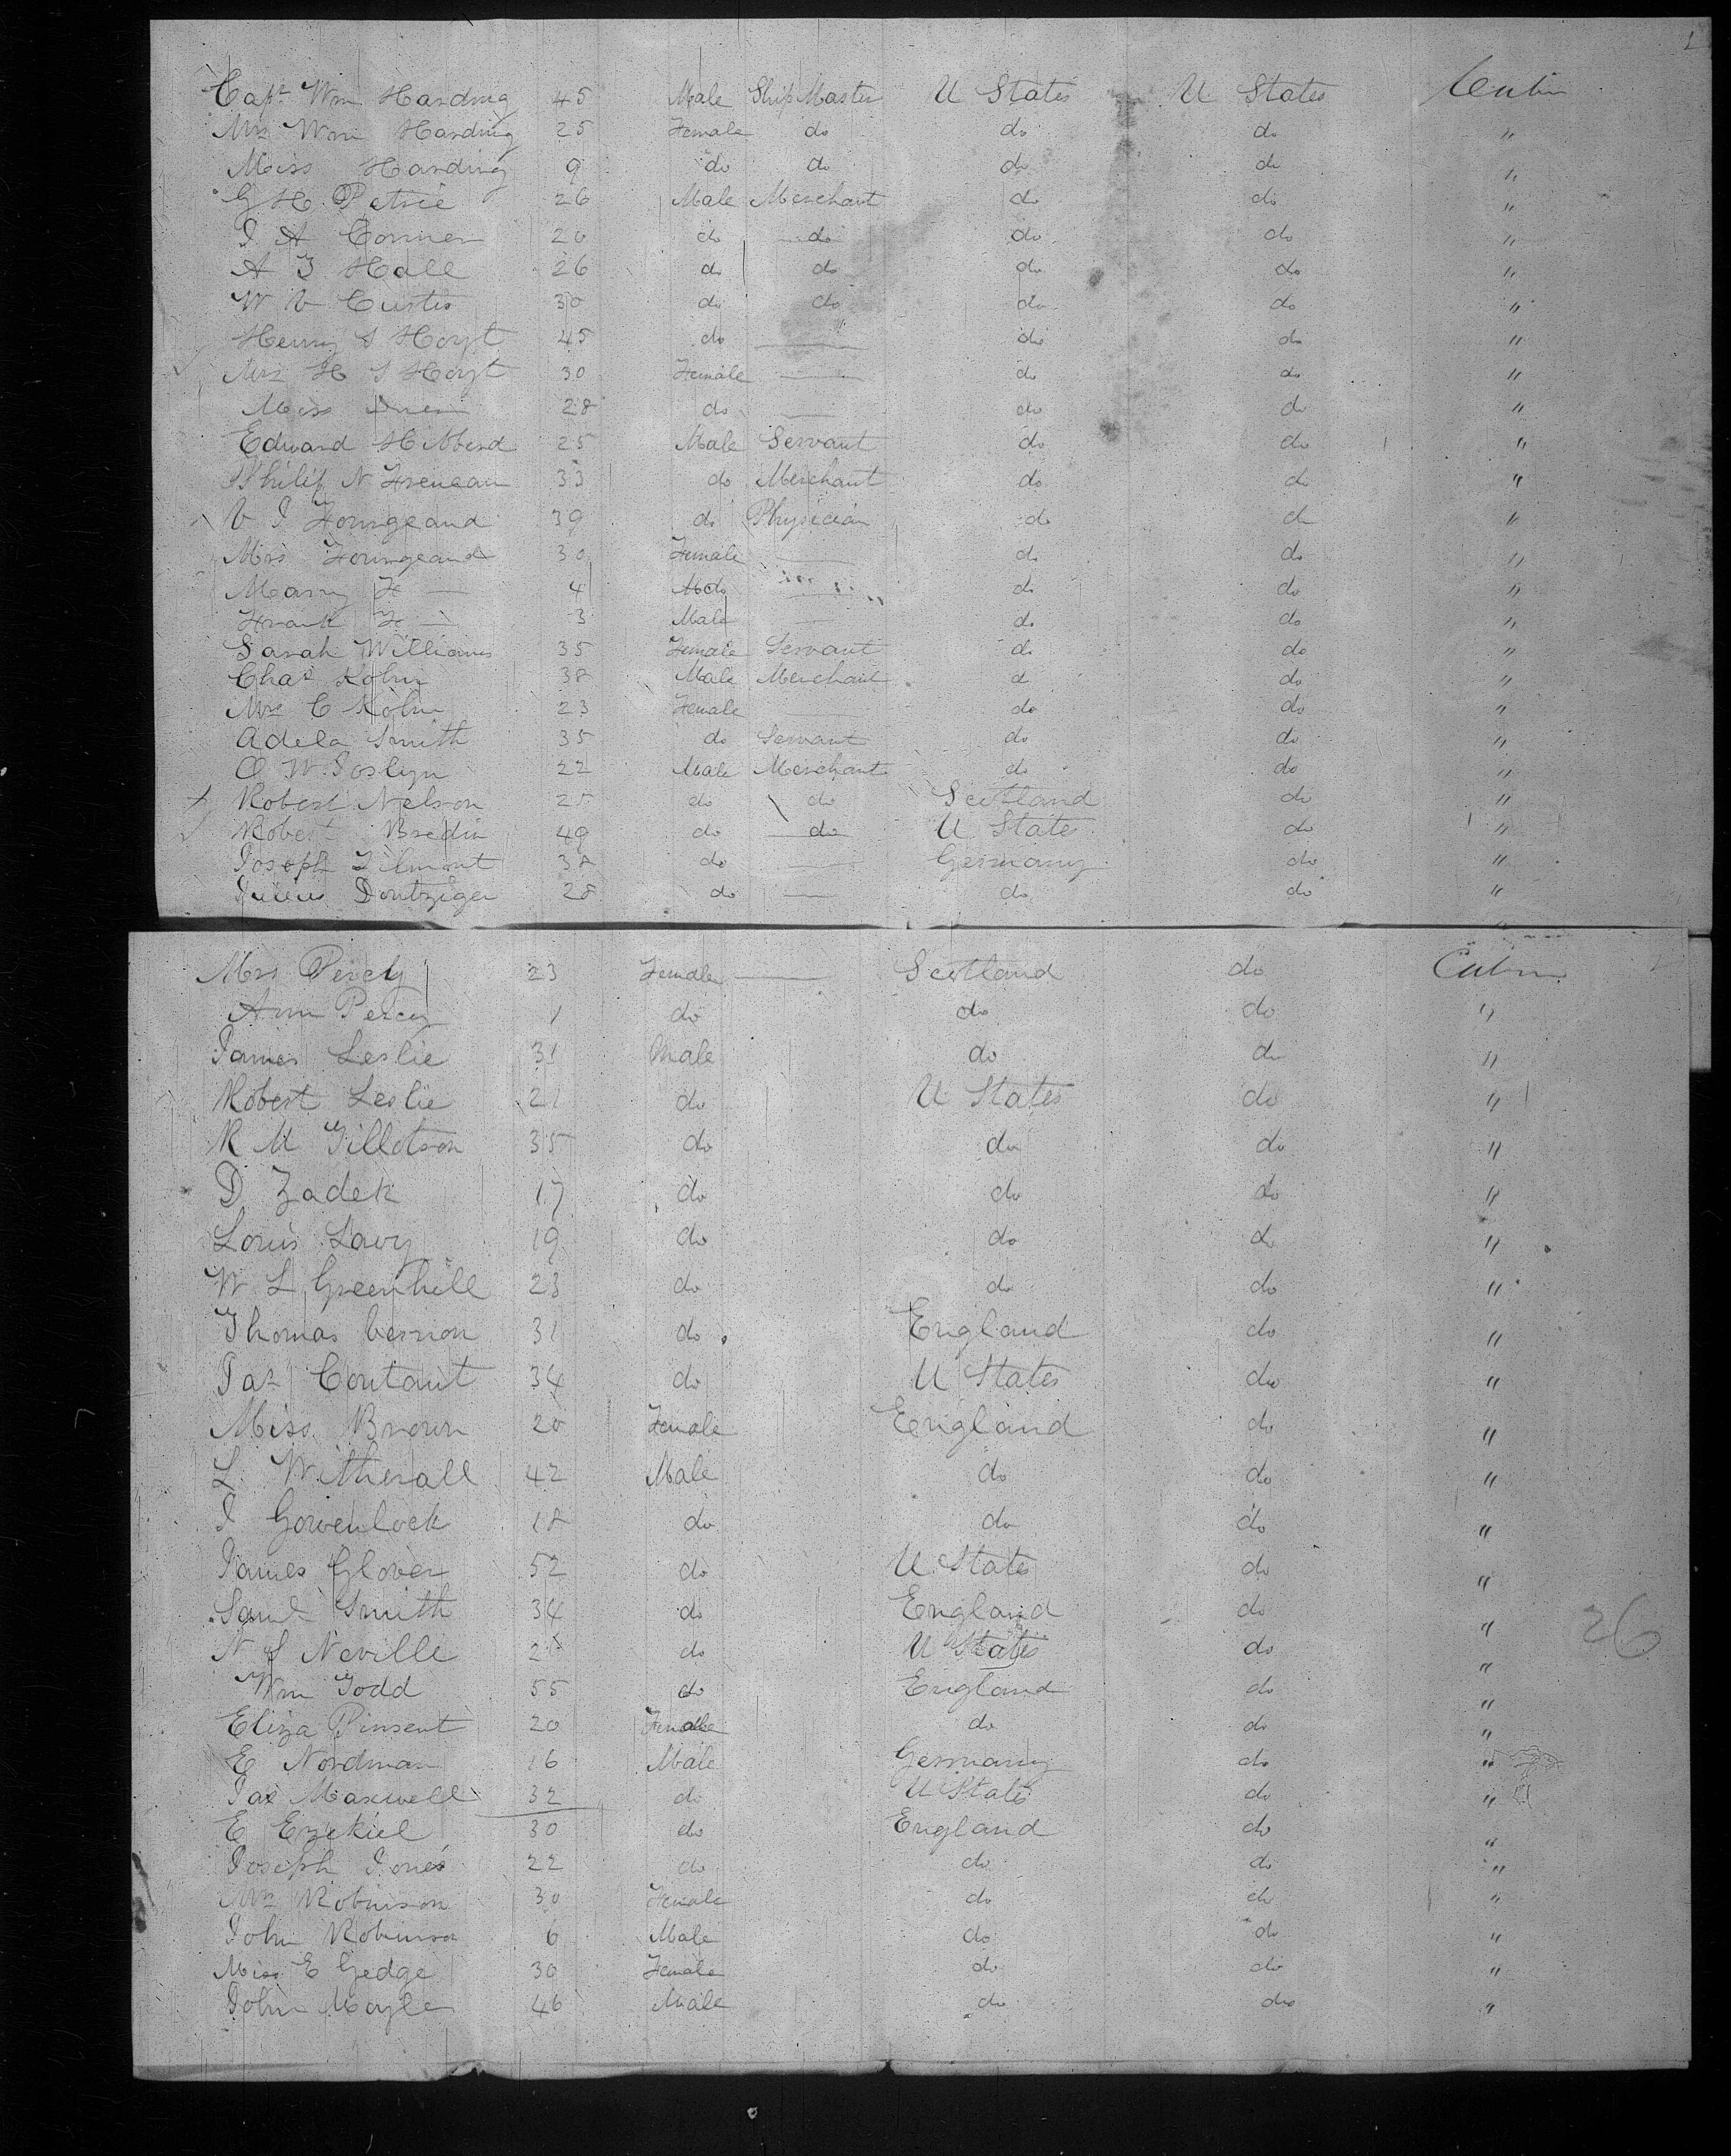 Capt Wm Harding 45 Male Ship Master U States U States Cabin
Mrs Wm Harding 25 Female do do do "
Miss Harding 9 do do do do "
G H Petrie 26 Male Merchant do do "
I A Conner 20 do do do do "
A T Hall 26 do do do do "
W V Curtis 30 do do do do "
Henry S Hoyt 45 do — do do "
Mrs H S Hoyt 30 Female — do do "
Miss 28 do — do do "
Edward Hibberd 25 Male Servant do do "
Philip N Freneau 33 do Merchant do do "
V I Fourgeaud 39 do Physician do do "
Mrs Fourgeaud 30 Female — do do "
Mary F — 4 do — do do "
Frank F — 3 Male — do do "
Sarah Williams 35 Female Servant do do "
Chas Kohn 38 Male Merchant d do "
Mrs C Kohn 23 Female — do do "
Adela Smith 35 do Servant do do "
O W Joslyn 22 Male Merchant do do "
Robert Nelson 25 do do Scotland do "
Robert Bredin 49 do do U State do "
Joseph 38 do — Germany do "
Julius Dontziger 28 do — do do "
Mrs Percy 23 Female — Scotland do Cabin
Ann Percy 1 do do do "
James Leslie 31 Male do do "
Robert Leslie 21 do U States do "
R M Tillotson 35 do do do "
D Zadek 17 do do do "
Louis Lavy 19 do do do "
W L Greenhill 23 do do do "
Thomas Vernon 31 do England do "
Jas Coutant 34 do U States do "
Miss Brown 20 Female England do "
L Witherall 42 Male do do "
J Gowenlock 18 do do do "
James Glover 52 do U States do "
Saml Smith 34 do England do "
26
N S Neville 21 do U States do "
Wm Todd 55 do England do "
Eliza Pinsent 20 Female do do "
E Nordman 16 Male Germany do "
Jas Maxwell 32 do U States do "
E Ezekiel 30 do England do "
Joseph Jones 22 do do do "
Mrs Robinson 30 Female do do "
John Robinson 6 Male do do "
Miss E Gedge 30 Female do do "
John Moyle 46 Male do do "